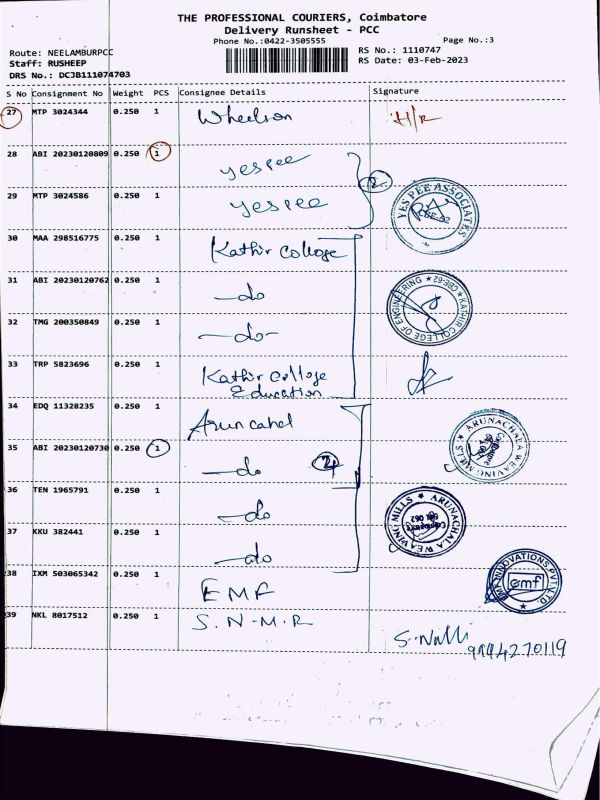 THE PROFESSIONAL COURIERS, Coimbatore
Delivery Runsheet - PCC
Phone No.:0422-3505555 Page No.:3
Route: NEELAMBURPCC RS No.: 1110747
Staff: RUSHEEP RS Date: 03-Feb-2023
DRS No.: DCJB111074703
S No Consignment No Weight PCS Consignee Details Signature
27 MTP 3024344 0.250 1 Wheelson H/R
28 ABI 20230120809 0.250 1 yespee
29 MTP 3024586 0.250 1 yespee YES PEE ASSOCIATES CBE-62
30 MAA 298516775 0.250 1 Kathir College
31 ABI 20230120762 0.250 1 -do KATHIR COLLEGE OF ENGINEERING CBE-62
32 TMG 200350849 0.250 1 -do-
33 TRP 5823696 0.250 1 Kathir College
Education
34 EDQ 11328235 0.250 1 Arun cahal
35 ABI 20230120730 0.250 1 -do ARUNACHALA WEAVING MILLS
36 TEN 1965791 0.250 1 -do ARUNACHALA WEAVING MILLS
37 KKU 382441 0.250 1 -do
38 IXM 503065342 0.250 1 EMF INNOVATIONS PVT LTD emf
39 NKL 8017512 0.250 1 S.N.M.R
S.Nalli
9994270119